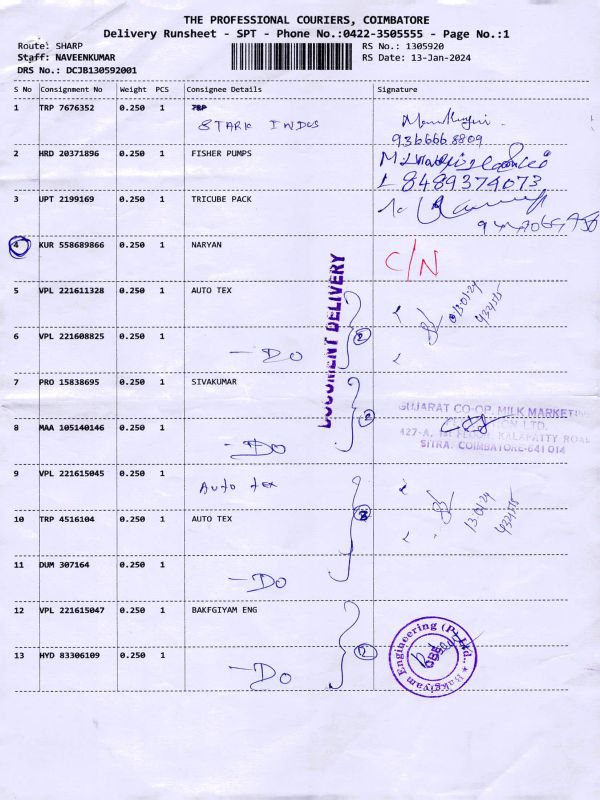 THE PROFESSIONAL COURIERS, COIMBATORE
Delivery Runsheet - SPT - Phone No.:0422-3505555 - Page No.:1
Route: SHARP
RS No.: 1305920
Staff: NAVEENKUMAR
RS Date: 13-Jan-2024
DRS No.: DCJB130592001
S No Consignment No Weight PCS Consignee Details Signature
1 TRP 7676352 0.250 1
STARK INDUS
9366668809
2 HRD 20371896 0.250 1 FISHER PUMPS
8489374073
3 UPT 2199169 0.250 1 TRICUBE PACK
4 KUR 558689866 0.250 1 NARYAN C/N
DOCUMENT DELIVERY
5 VPL 221611328 0.250 1 AUTO TEX
13.01.24
6 VPL 221608825 0.250 1
- Do 2
7 PRO 15838695 0.250 1 SIVAKUMAR
GUJARAT CO-OP. MILK MARKETING
LTD.
8 MAA 105140146 0.250 1
427-A, 1st FLOOR, KALAPATTY ROAD
- Do
SITRA, COIMBATORE-641 014
9 VPL 221615045 0.250 1
Auto tex
13.01.24
10 TRP 4516104 0.250 1 AUTO TEX 3
11 DUM 307164 0.250 1
- Do
12 VPL 221615047 0.250 1 BAKFGIYAM ENG
Bakgiyam Engineering (P) Ltd.,
CBE
13 HYD 83306109 0.250 1
2
- Do